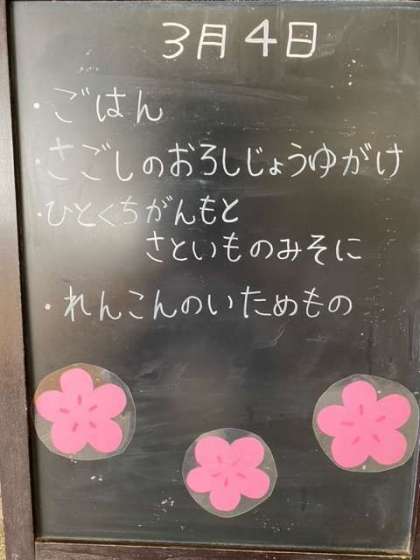 3月4日
・ごはん
・さごしのおろしじょうゆがけ
・ひとくちがんもと
さといものみそに
・れんこんのいためもの